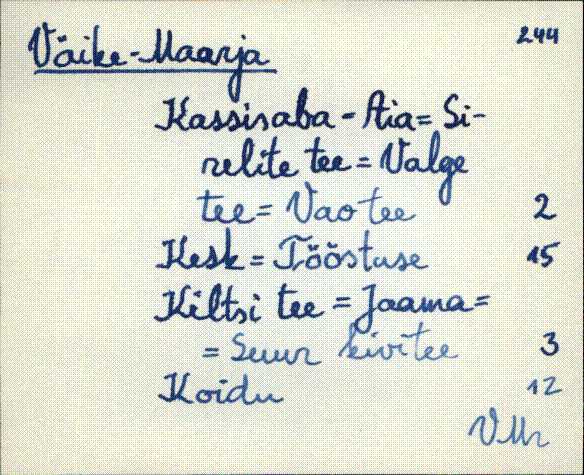 Väike-Maarja 244
Kassisaba - Aia = Si-
relite tee = Valge
tee = Vao tee 2
Kesk = Tööstuse 15
Kiltsi tee = Jaama =
= Suur kivitee 3
Koidu 12
VMr